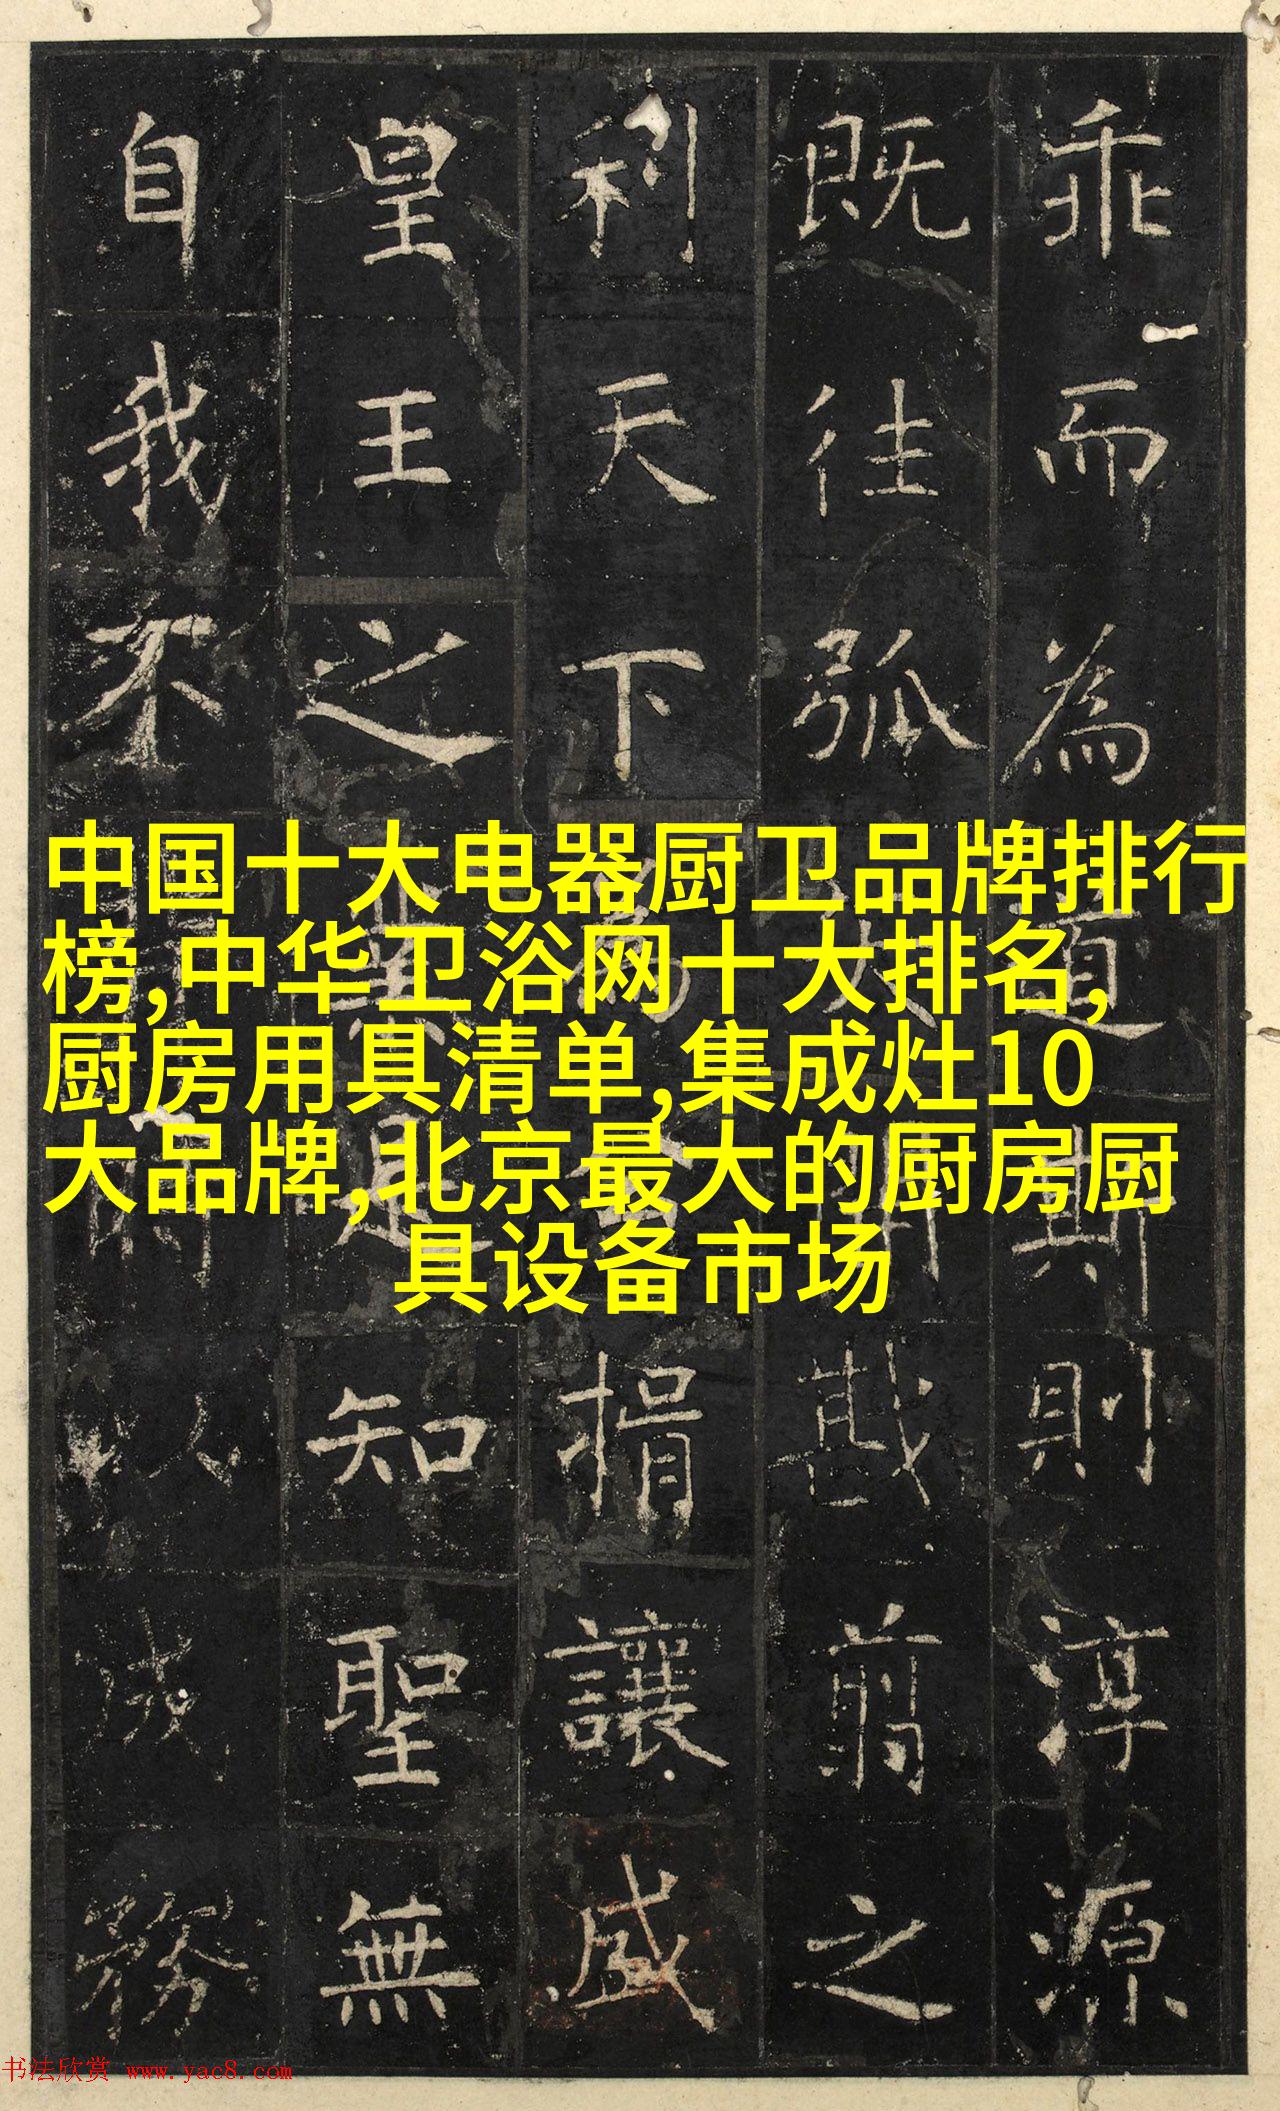 乖而為道斯則淳源
既往弧戡翦之
利天下為捐讓盛
皇王之業是知聖無
自我不以成務
中国十大电器厨卫品牌排行
榜,中华卫浴网十大排名,
厨房用具清单,集成灶10
大品牌,北京最大的厨房厨
具设备市场
书法欣赏 www.yac8.com